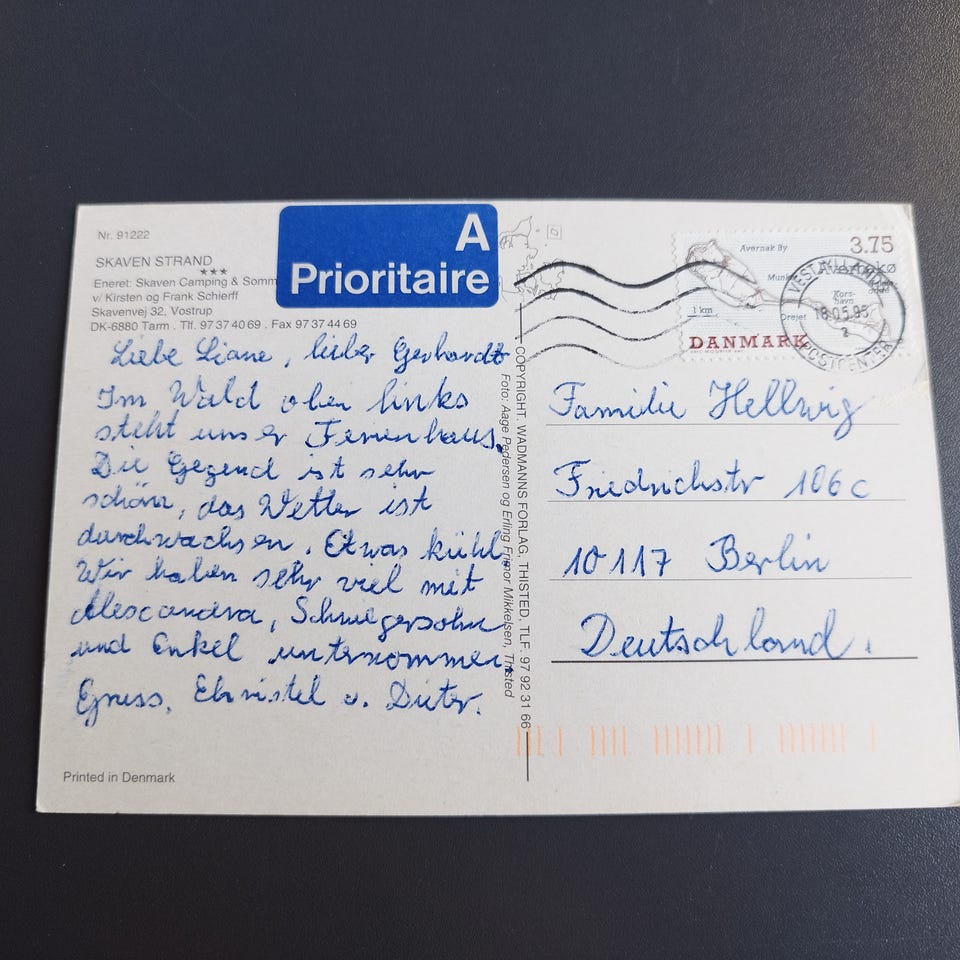 Nr. 91222
SKAVEN STRAND
***
Eneret: Skaven Camping & Somm
v/ Kirsten og Frank Schierff
Skavenvej 32, Vostrup
DK-6880 Tarm . Tlf. 97 37 40 69 . Fax 97 37 44 69
A
Prioritaire
Liebe Liane, lieber Gerhardt
Im Wald oben links
steht unser Ferienhaus.
Die Gegend ist sehr
schön, das Wetter ist
durchwachsen. Etwas kühl.
Wir haben sehr viel mit
Alescandra, Schwiegersohn
und Enkel unternommen.
Gruss, Christel u. Dieter.
Printed in Denmark
COPYRIGHT. WADMANNS FORLAG, THISTED, TLF. 97 92 31 66
Foto: Aage Pedersen og Erling Frimor Mikkelsen, Thisted
Avernak By
3.75
Avernakø
Munke
Kors-
havn
1 km
Drejet
DANMARK
VESTJYLLANDS
18.05.95
2
POSTCENTER
Familie Hellwig
Friedrichstr 106c
10117 Berlin
Deutschland.